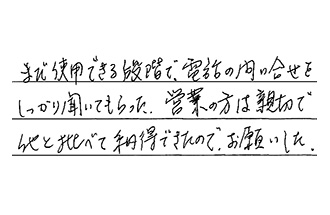 まだ使用できる段階で、電話の問い合せを
しっかり聞いてもらった。営業の方は親切で
他と比べて納得できたので、お願いした。